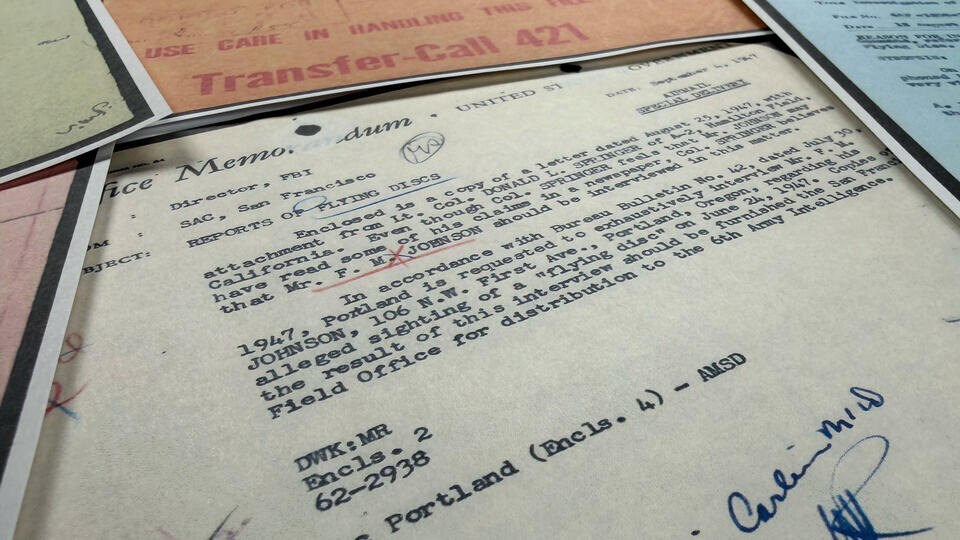 USE CARE IN HANDLING THIS FILE
Transfer-Call 421
Office Memorandum
UNITED ST
DATE: September 4, 1947
AIRMAIL
SPECIAL DELIVERY
Director, FBI
SAC, San Francisco
BJECT: REPORTS OF FLYING DISCS
Enclosed is a copy of a letter dated August 25, 1947, with
attachment from Lt. Col. DONALD L. SPRINGER of A-2, Hamilton Field,
California. Even though Col. SPRINGER feels that Mr. JOHNSON may
have read some of his claims in a newspaper, COL. SPRINGER believes
that Mr. F. M. JOHNSON should be interviewed in this matter.
In accordance with Bureau Bulletin No. 42, dated July 30,
1947, Portland is requested to exhaustively interview Mr. F. M.
JOHNSON, 106 N.W. First Ave., Portland, Oregon, regarding his
alleged sighting of a "flying disc" on June 24, 1947. Copies of
the result of this interview should be furnished the San Francisco
Field Office for distribution to the 6th Army Intelligence.
DWK:MR
Encls. 2
62-2938
Portland (Encls. 4) - AMSD